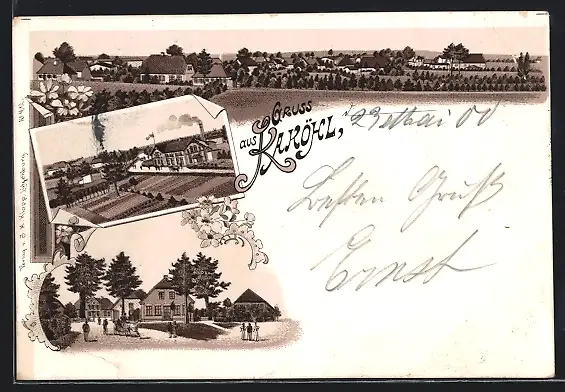 Gruss
aus Kaköhl,
d. 29 Mai 00
Besten Gruß
Ernst